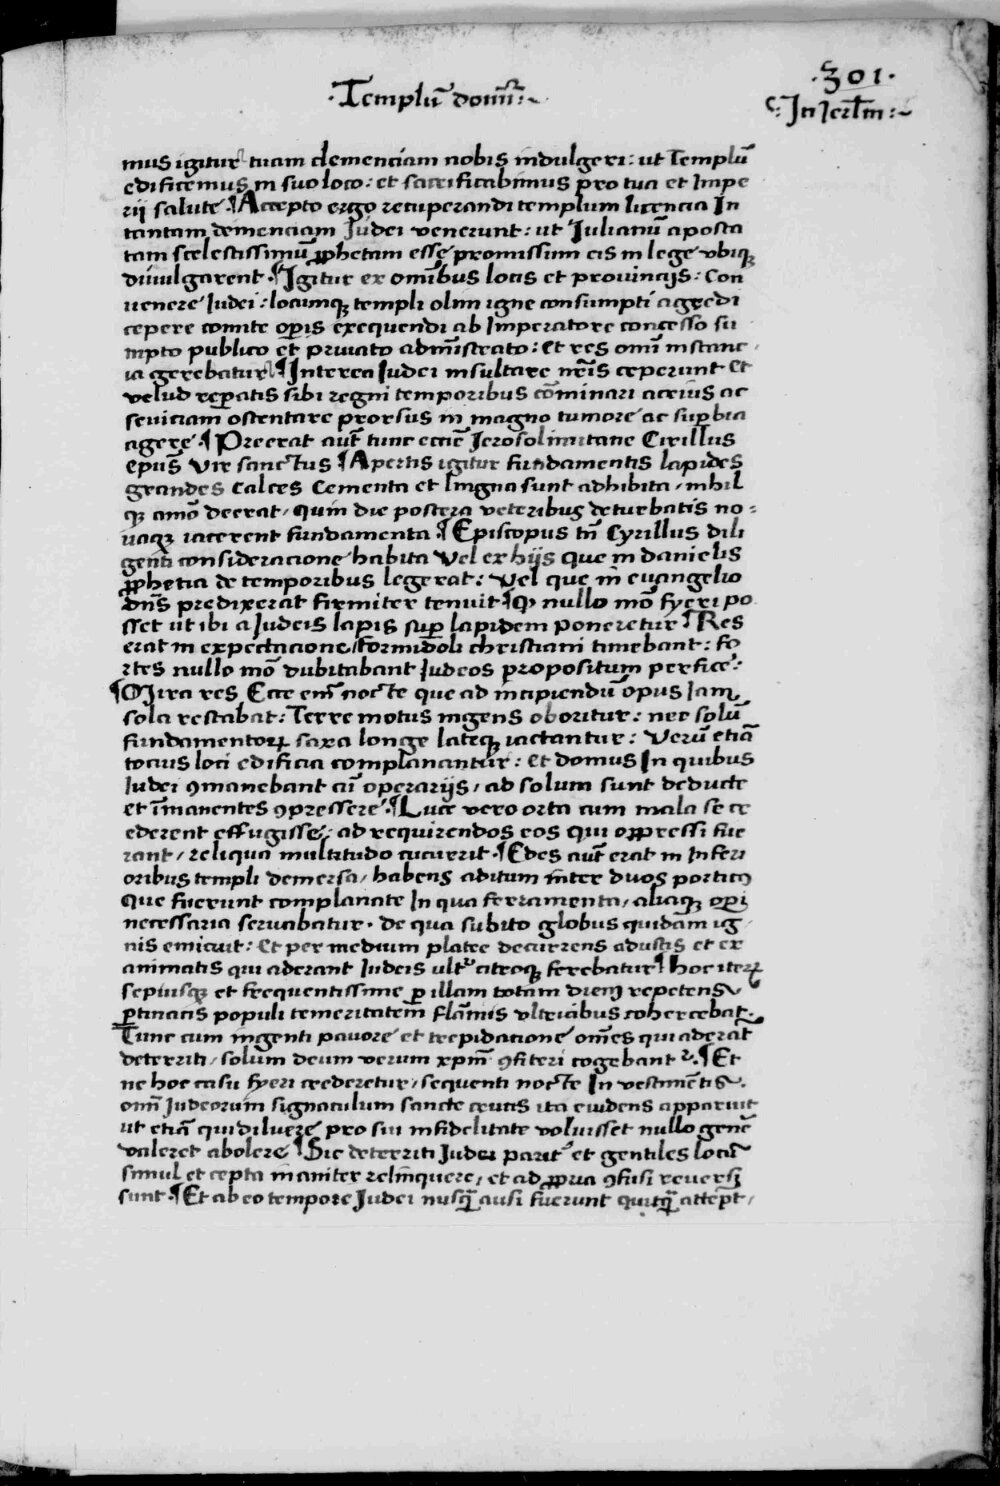 ·301·
·Templū domī:~
In Jerlm:~
mus igitur tuam clemenciam nobis indulgeri: ut Templū
edificemus in suo loco: et sacrificabimus pro tua et Impe
rii salute ¶ Accepto ergo recuperandi templum licencia In
tantam demenciam Judei venerunt: ut Iulianū aposta
tam scelestissimū ꝓphetam esse promissum eis in lege vbiqꝫ
diuulgarent ¶ Igitur ex omībus locis et prouincijs: Con
uenere Iudei: locumqꝫ templi olim igne consumpti agredi
cepere comite oꝑis exequendi ab Imperatore concesso su
mpto publico et priuato admīstrato: Et res omī instanc
ia gerebatur ¶ Interea Iudei insultare nr̄is ceperunt Et
velud reꝑatis sibi regni temporibus cōminari acrius ac
seuiciam ostentare prorsus in magno tumore ac suꝑbia
agere ¶ Preerat aut̄ tunc eccīe Jerosolimitane Cirillus
epus̄ Vir sanctus ¶ Apertis igitur fundamentis lapides
grandes Calces Cementa et lingna sunt adhibita / nihil
qꝫ amō deerat / quin die postera veteribus deturbatis no=
uaqꝫ iacerent fundamenta ¶ Episcopus tn̄ Cyrillus dili
genti consideracione habita Vel ex hijs que in danielis
ꝓphetia de temporibus legerat: Vel que in euangelio
dn̄s predixerat firmiter tenuit ¶ Ꝙ nullo mō fyeri po
sset ut ibi a Judeis lapis suꝑ lapidem poneretur ¶ Res
erat in expectacione / formidoli christiani timebant: fo
rtes nullo mō dubitabant Judeos propositum perfice:
¶ Mira res Ecce em̄ nocte que ad incipiendū opus Iam
sola restabat: Terre motus ingens oboritur: nec solū
fundamentoꝝ saxa longe lateqꝫ iactantur: Verū etiā
tocius loci edificia complanantur: et domus In quibus
Iudei ꝯmanebant cū operarijs / ad solum sunt deducte
et īmanentes ꝯpressere ¶ Luce vero orta cum mala se ce
ederent effugisse: ad requirendos eos Qui oppressi fue
rant / reliqua multitudo cucurrit ¶ Edes aut̄ erat in Inferi
oribus templi demersa / habens aditum inter duos porticꝰ
Que fuerunt complanate In qua ferramenta / aliaqꝫ oꝑi
necessaria seruabatur · de qua subito globus quidam ig
nis emicuit: Et per medium platee decurrens adustis et ex
animatis qui aderant Iudeis ult͛ citroqꝫ ferebatur ¶ hoc iteꝝ
sepiusqꝫ et frequentissime ꝑ illam totam diem repetens
ꝑtinacis populi temeritatem flāmis vltricibus cohercebat·
Tunc cum ingenti pauore et trepidacione om̄es qui aderāt
deterriti / solum deum verum xp̄m ꝯfiteri cogebant͛ ¶ Et
ne hoc casu fyeri crederetur / sequenti nocte In vestimētis·
omī Judeorum signaculum sancte crucis ita euidens apparuit
ut etiā qui diluere pro sui infidelitate voluisset nullo genē
valeret abolere ¶ Sic deterriti Judei parit͛ et gentiles locū
simul et cepta inaniter relinquere / et ad ꝓpria ꝯfusi reuersi
sunt ¶ Et ab eo tempore Judei nusꝗ̄ ausi fuerunt quicꝗ̄ attep̄t /